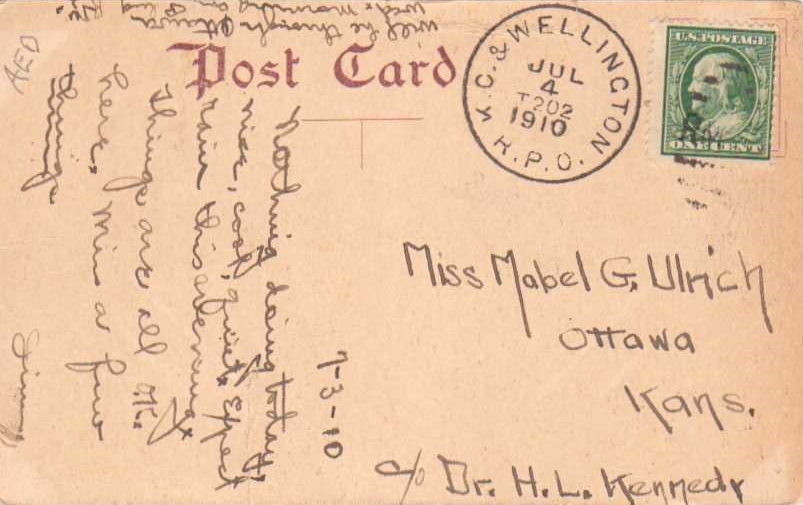 Post Card
K.C. & WELLINGTON
JUL
4
T202
1910
R.P.O.
U.S. POSTAGE
ONE CENT
Miss Mabel G. Ulrich
Ottawa
Kans.
c/o Dr. H. L. Kennedy
7-3-10
Nothing doing today,
nice, cool, quiet. Expect
rain this evening.
Things are all OK.
here. Miss a few
things
will be through Ottawa
Wed. morning on